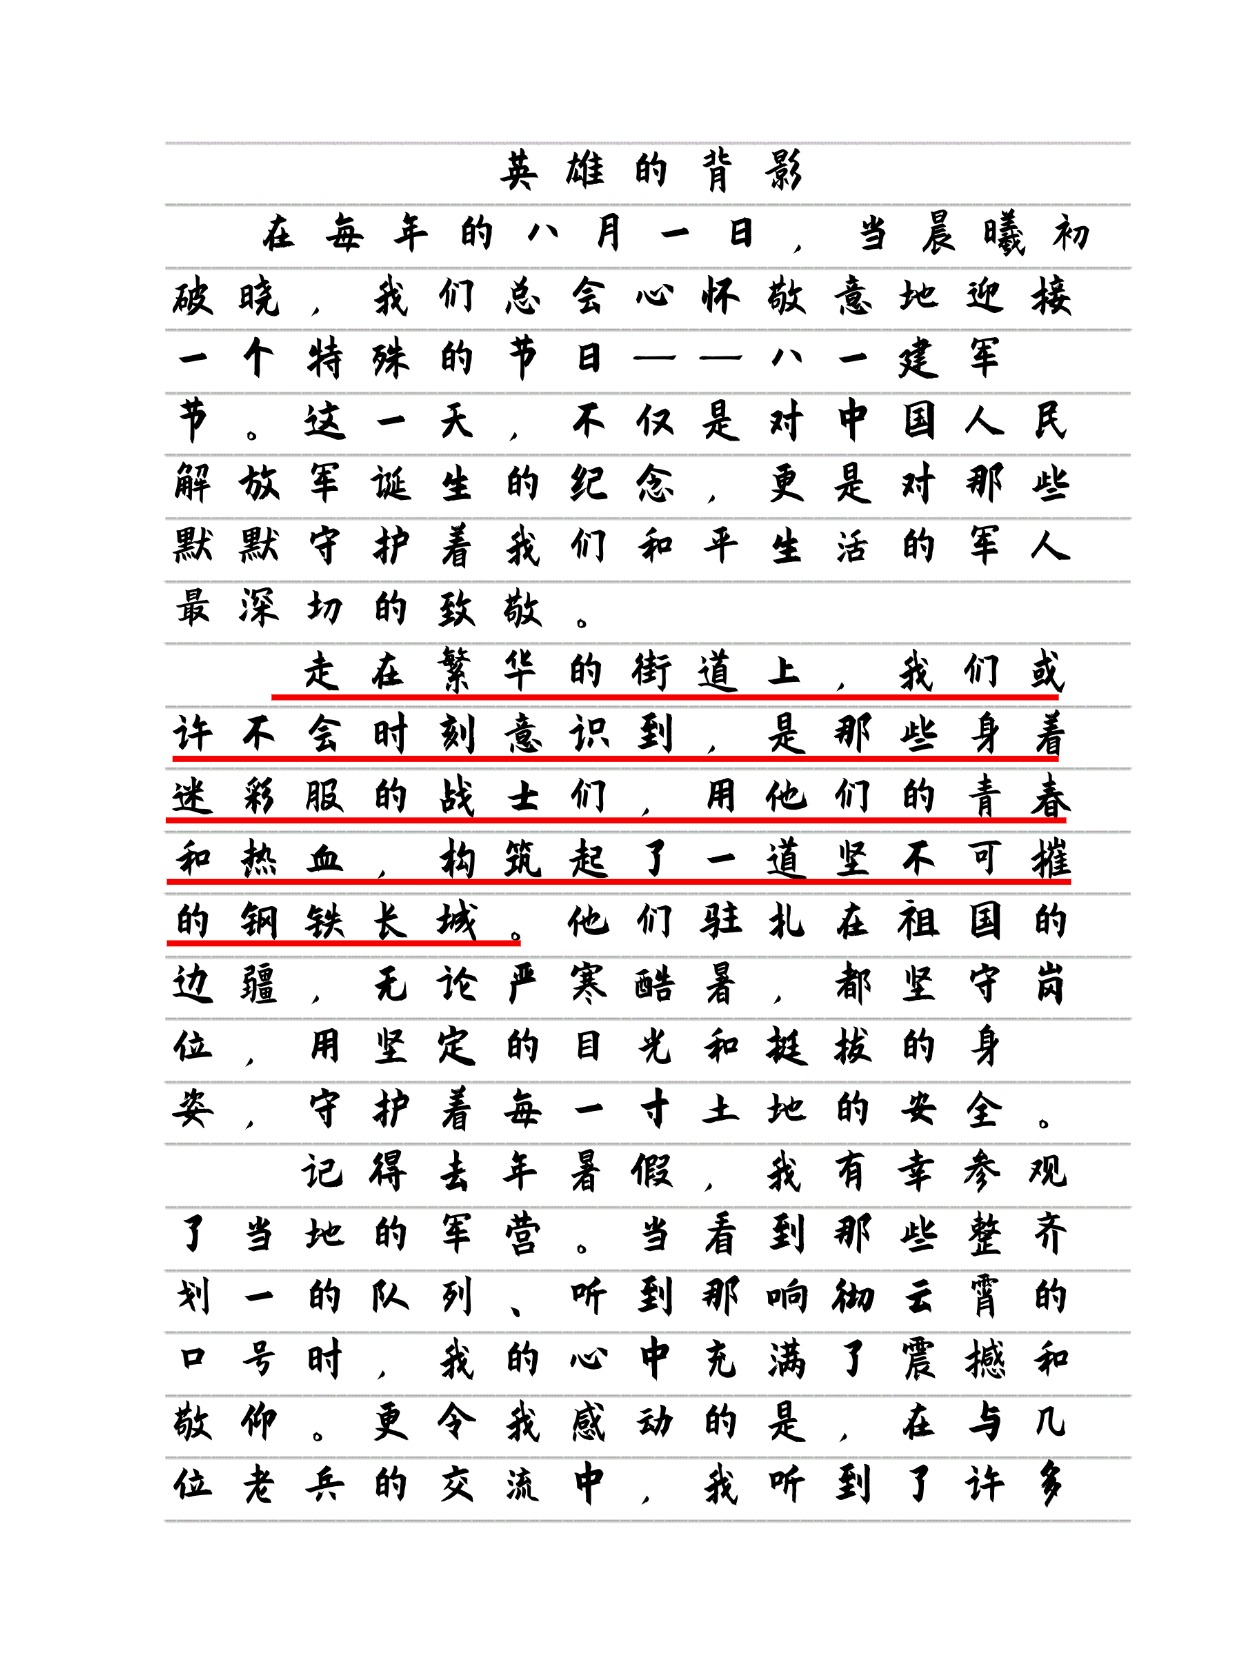 英雄的背影
在每年的八月一日，当晨曦初
破晓，我们总会心怀敬意地迎接
一个特殊的节日——八一建军
节。这一天，不仅是对中国人民
解放军诞生的纪念，更是对那些
默默守护着我们和平生活的军人
最深切的致敬。
走在繁华的街道上，我们或
许不会时刻意识到，是那些身着
迷彩服的战士们，用他们的青春
和热血，构筑起了一道坚不可摧
的钢铁长城。他们驻扎在祖国的
边疆，无论严寒酷暑，都坚守岗
位，用坚定的目光和挺拔的身
姿，守护着每一寸土地的安全。
记得去年暑假，我有幸参观
了当地的军营。当看到那些整齐
划一的队列、听到那响彻云霄的
口号时，我的心中充满了震撼和
敬仰。更令我感动的是，在与几
位老兵的交流中，我听到了许多